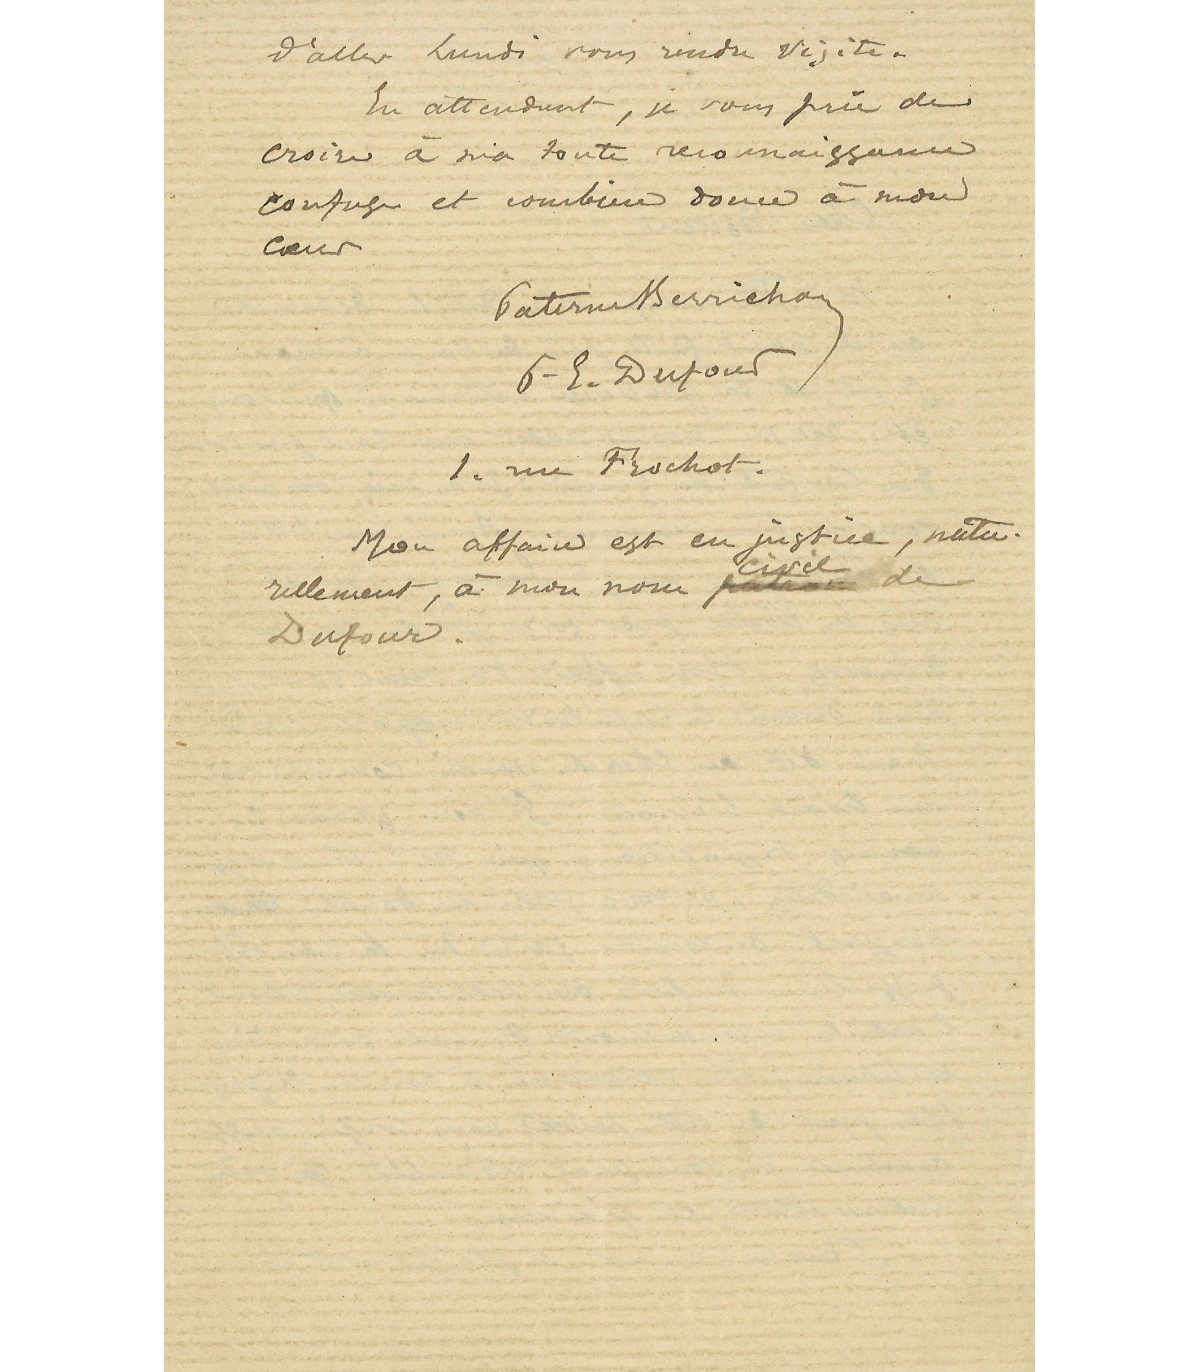 d'aller Lundi vous rendre visite.
En attendant, je vous prie de
croire à ma toute reconnaissance
confuse et combien douce à mon
cœur
Paterne Berrichon
P-E. Dufour
1. rue Frochot.
Mon affaire est en justice, natu-
rellement, à mon nom civil de
Dufour.